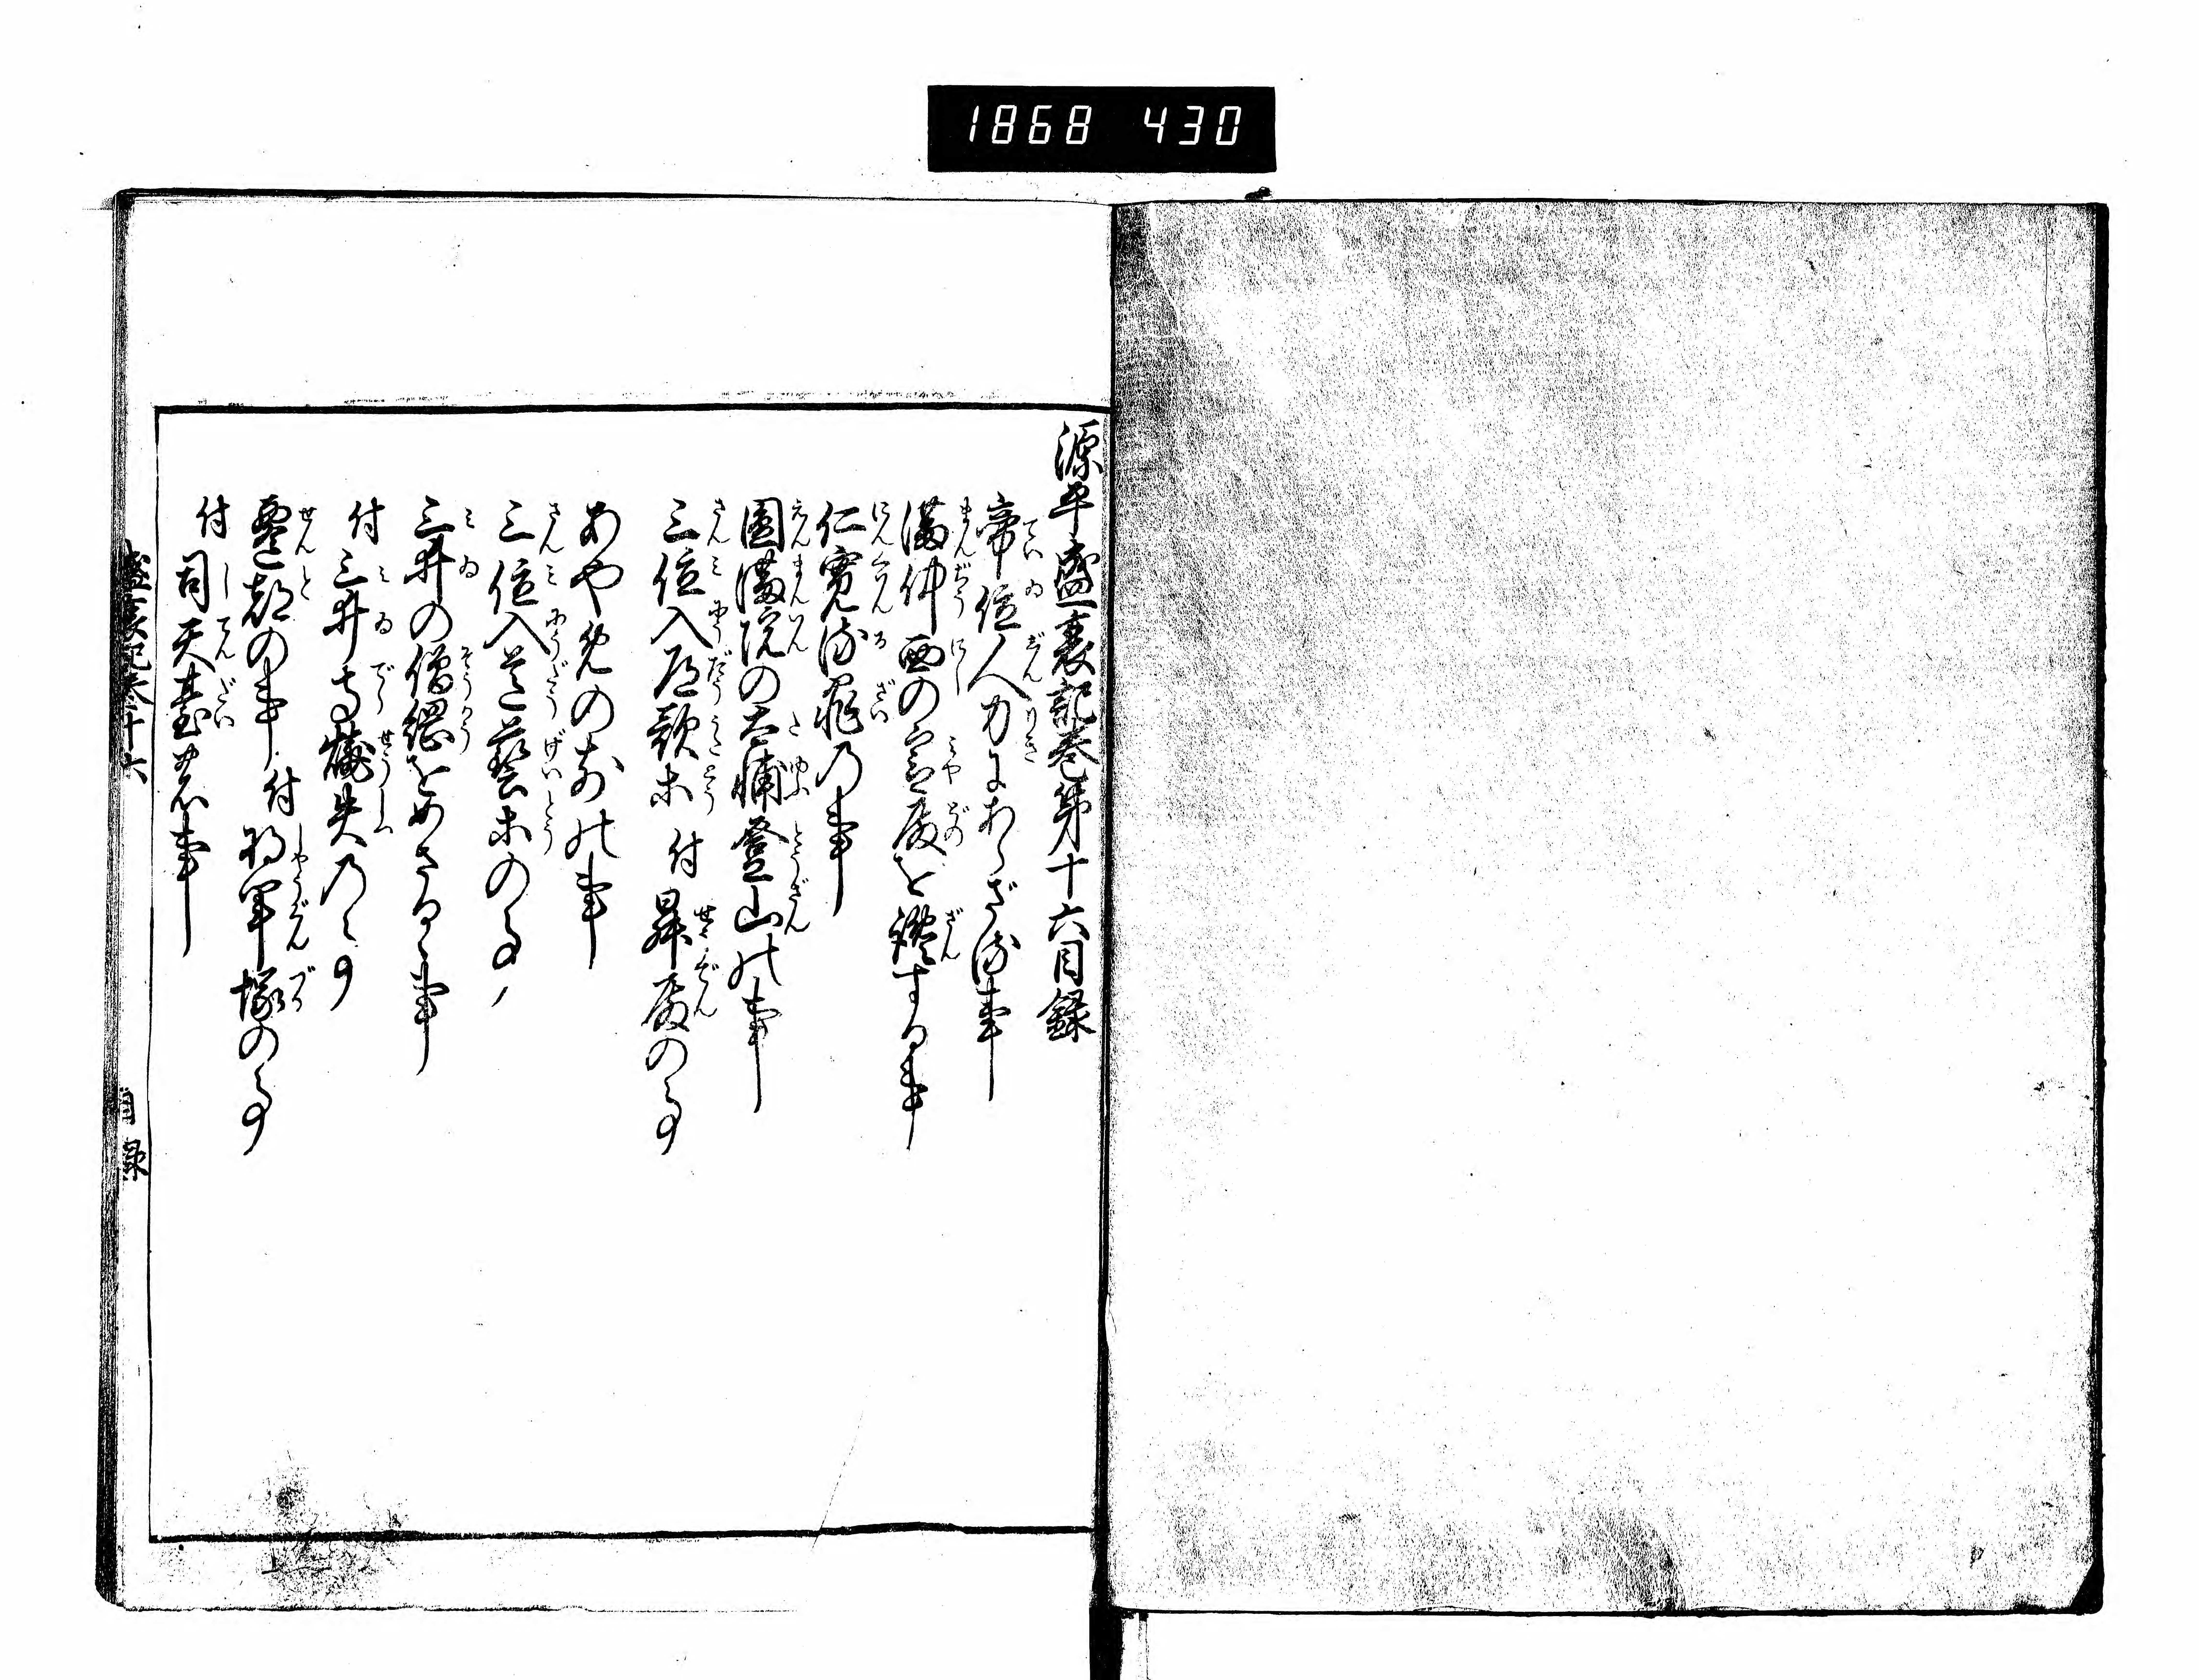 1868 430
源平盛衰記巻第十六目録
帝位人力にあらざる事
満仲西の宮殿を讒する事
仁寛流罪の事
円満院の大輔登山の事
三位入道歌等 付 昇殿の事
あやめの前の事
三位入道芸等の事
三井の僧綱をめさるゝ事
付 三井寺焼失の事
遷都の事 付 将軍塚の事
付 司天台の事
盛衰記巻十六
目録